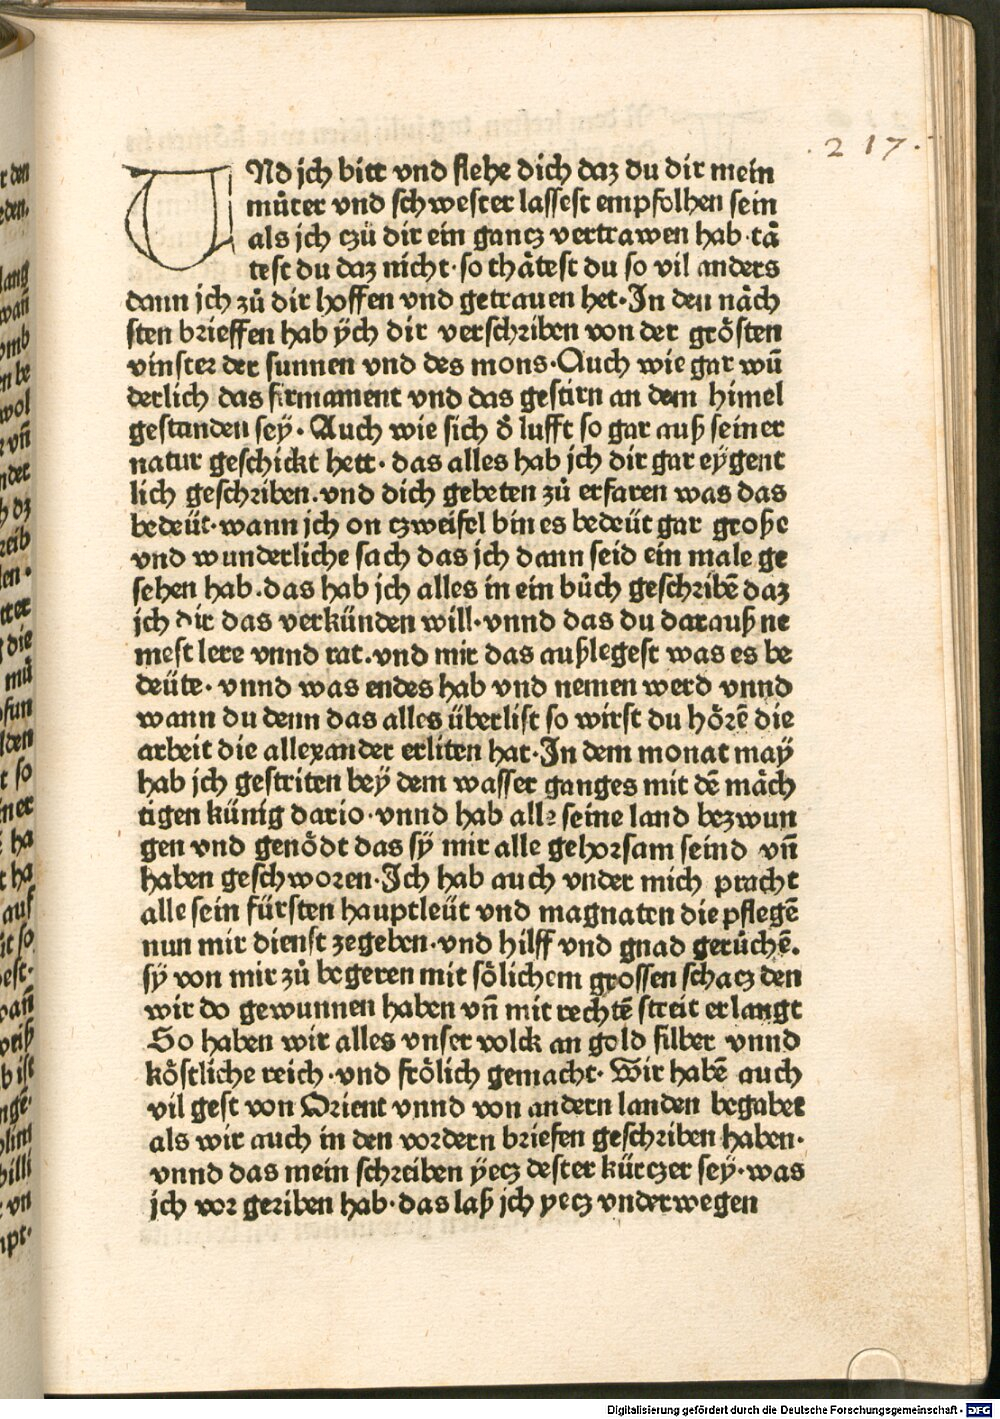 217.
UNd jch bitt vnd flehe dich daz du dir mein
můter vnd schwester lassest empfolhen sein
als jch czů dir ein gancz vertrawen hab·tä
test du daz nicht·so thätest du so vil anders
dann jch zů dir hoffen vnd getrauen het·In den näch
sten brieffen hab ÿch dir verschriben von der grösten
vinster der sunnen vnd des mons·Auch wie gar wū
derlich das firmament vnd das gestirn an dem himel
gestanden seÿ·Auch wie sich d̄ lufft so gar auß seiner
natur geschickt hett·das alles hab jch dir gar eÿgent
lich geschriben.vnd dich gebeten zů erfaren was das
bedeüt·wann jch on czweifel bin es bedeüt gar große
vnd wunderliche sach das jch dann seid ein male ge
sehen hab.das hab jch alles in ein bůch geschribē daz
jch dir das verkünden will·vnnd das du darauß ne
mest lere vnnd rat.vnd mir das außlegest was es be
deüte·vnnd was endes hab vnd nemen werd vnnd
wann du denn das alles überlist so wirst du hörē die
arbeit die allexander erliten hat·In dem monat maÿ
hab jch gestriten beÿ dem wasser ganges mit dē mäch
tigen künig dario·vnnd hab alle seine land bezwun
gen vnd genödt das sÿ mir alle gehorsam seind vñ
haben geschworen·Ich hab auch vnder mich pracht
alle sein fürsten hauptleüt vnd magnaten die pflegē
nun mir dienst zegeben·vnd hilff vnd gnad gerůchē.
sÿ von mir zů begeren mit sölichem grossen schacz den
wir do gewunnen haben vñ mit rechtē streit erlangt
So haben wir alles vnser volck an gold silber vnnd
köstliche reich·vnd frölich gemacht·Wir habē auch
vil gest von Orient vnnd von andern landen begabet
als wir auch in den vordern briefen geschriben haben·
vnnd das mein schreiben ÿecz dester kürczer seÿ·was
jch vor geriben hab·das laß jch yecz vnderwegen
Digitalisierung gefördert durch die Deutsche Forschungsgemeinschaft - DFG